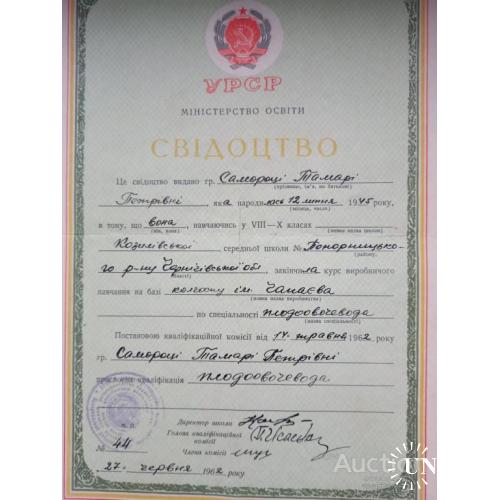 УРСР
МІНІСТЕРСТВО ОСВІТИ
СВІДОЦТВО
Це свідоцтво видано гр. Самороці Тамарі
(прізвище, ім'я, по батькові)
Петрівні яка народилась 12 липня 1945 року,
(місяць, число)
в тому, що вона, навчаючись у VIII—X класах
(він, вона) (повна назва школи)
середньої школи № Понорницько-
району,
го р-ну Чернігівської обл, закінчила курс виробничого
області
навчання на базі колгоспу ім. Чапаєва
(повна назва виробництва)
по спеціальності плодоовочевода
(повна назва спеціальності)
Постановою кваліфікаційної комісії від 14 травня 1962 року
гр. Самороці Тамарі Петрівні
присвоєна кваліфікація плодоовочевода
Директор школи
М. П.
Голова кваліфікаційної
комісії
№ 44 Члени комісії
27. червня 1962 року.
Aukro
UN